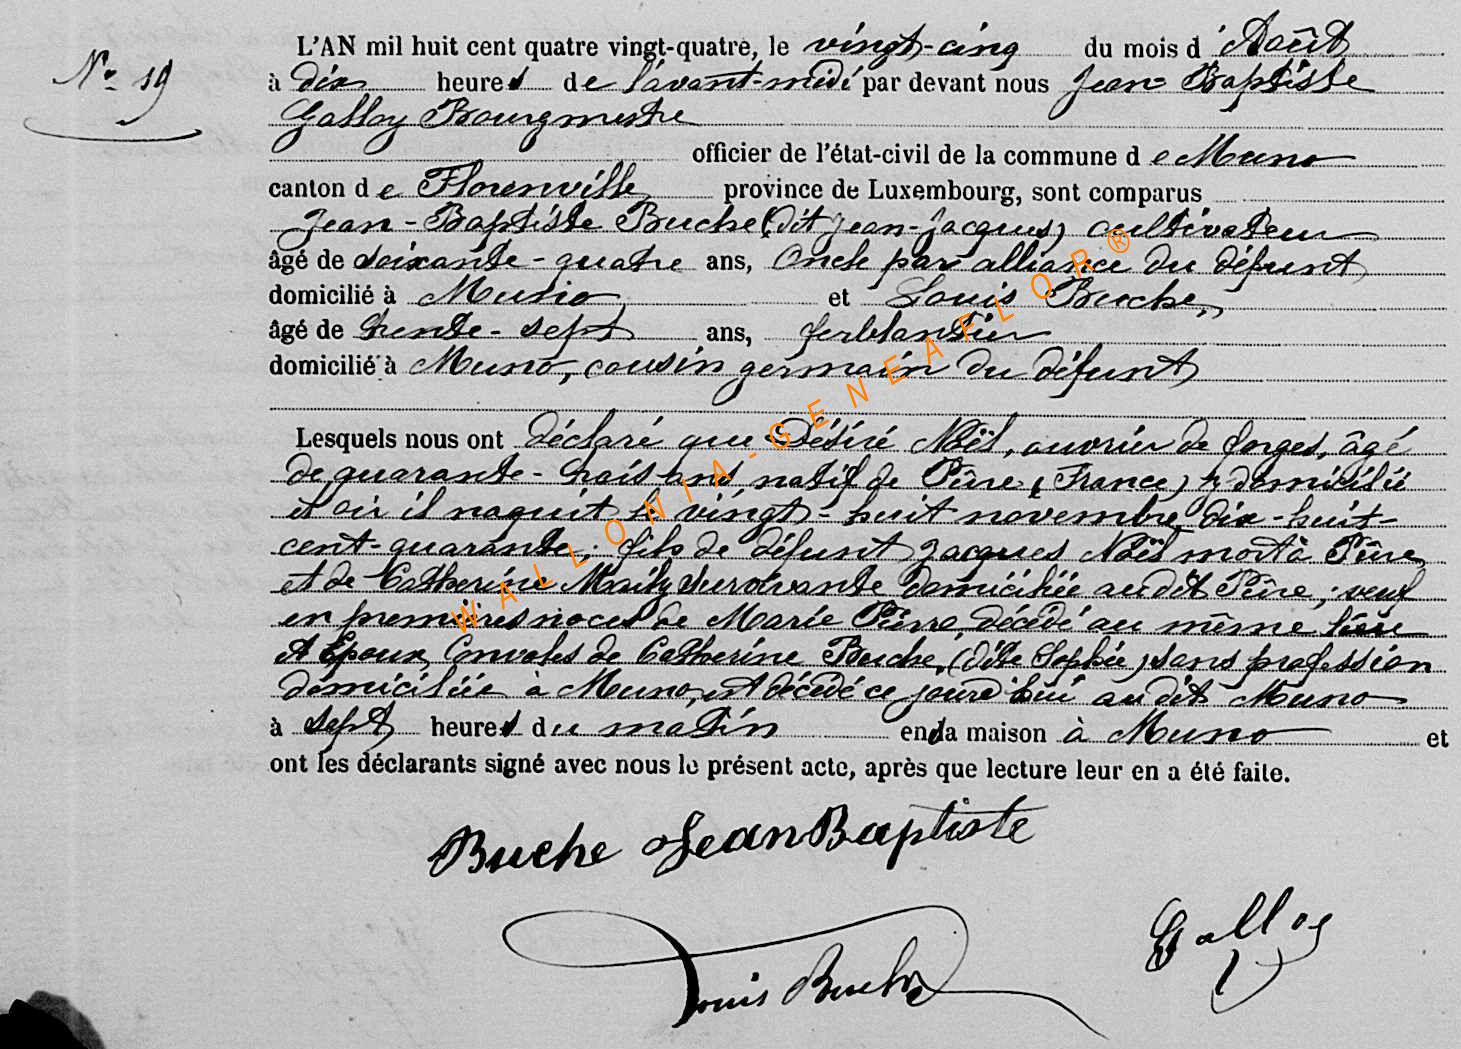 N° 19
L'AN mil huit cent quatre vingt-quatre, le vingt-cinq du mois d'Août
à dix heures de l'avant-midi par devant nous Jean Baptiste
Galloy Bourgmestre
officier de l'état-civil de la commune de Muno
canton de Florenville province de Luxembourg, sont comparus
Jean-Baptiste Buche (dit Jean-Jacques) cultivateur
âgé de soixante-quatre ans, Oncle par alliance du défunt
domicilié à Muno et Louis Buche,
âgé de trente-sept ans, ferblantier
domicilié à Muno, cousin germain du défunt
Lesquels nous ont déclaré que Désiré Noël, ouvrier de forges, âgé
de quarante-trois ans natif de Pûre (France) y domicilié
et où il naquit le vingt-huit novembre dix-huit-
cent-quarante, fils de défunt Jacques Noël mort à Pûre
et de Catherine survivante domiciliée au dit Pûre, veuf
en premières noces de Marie Pierre décédé au même lieu
et Epoux Convoles de Catherine Buche, (dite Sophie) sans profession
domiciliée à Muno, est décédé ce jourd'hui au dit Muno
à sept heures du matin en la maison à Muno et
ont les déclarants signé avec nous le présent acte, après que lecture leur en a été faite.
Buche Jean Baptiste
Louis Buche
Galloy
WALLONIA-GENEAFLOR®